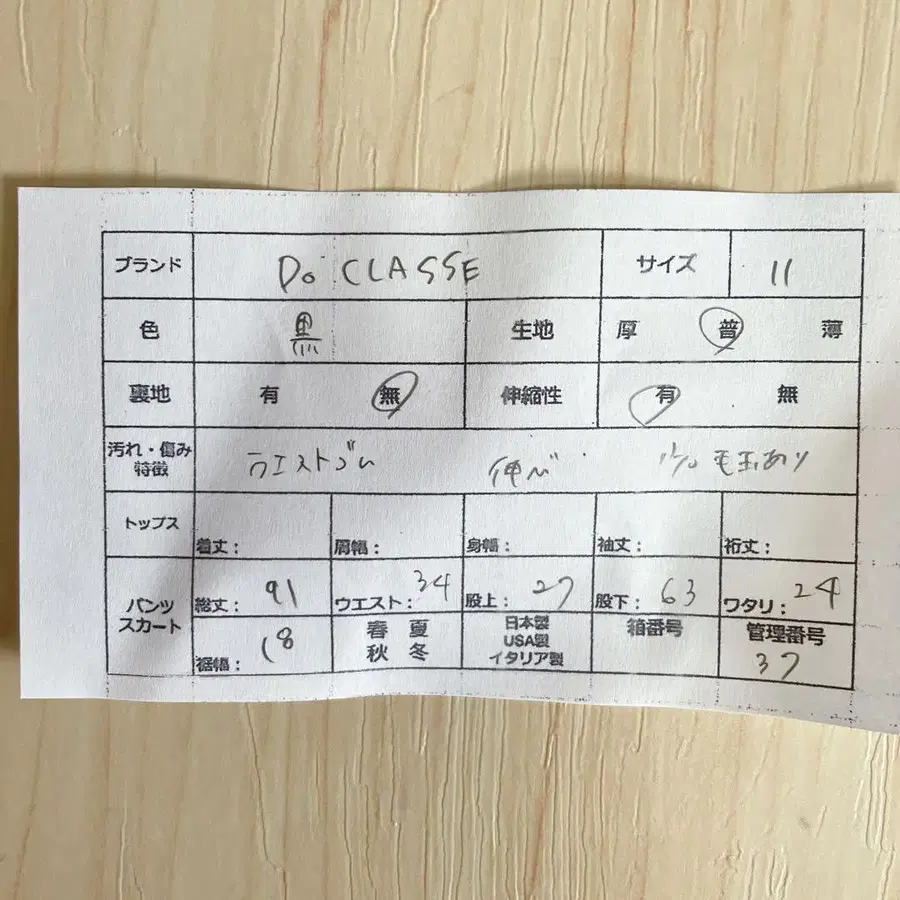 ブランド Do CLASSE サイズ 11
色 黒 生地 厚 普 薄
裏地 有 無 伸縮性 有 無
汚れ・傷み
特徴 ウエストゴム 毛玉あり
トップス 着丈: 肩幅: 身幅: 袖丈: 裄丈:
パンツ
スカート 総丈: 91 ウエスト: 34 股上: 27 股下: 63 ワタリ: 24
裾幅: 18 春 夏
秋 冬
日本製
USA製
イタリア製
箱番号
管理番号
37